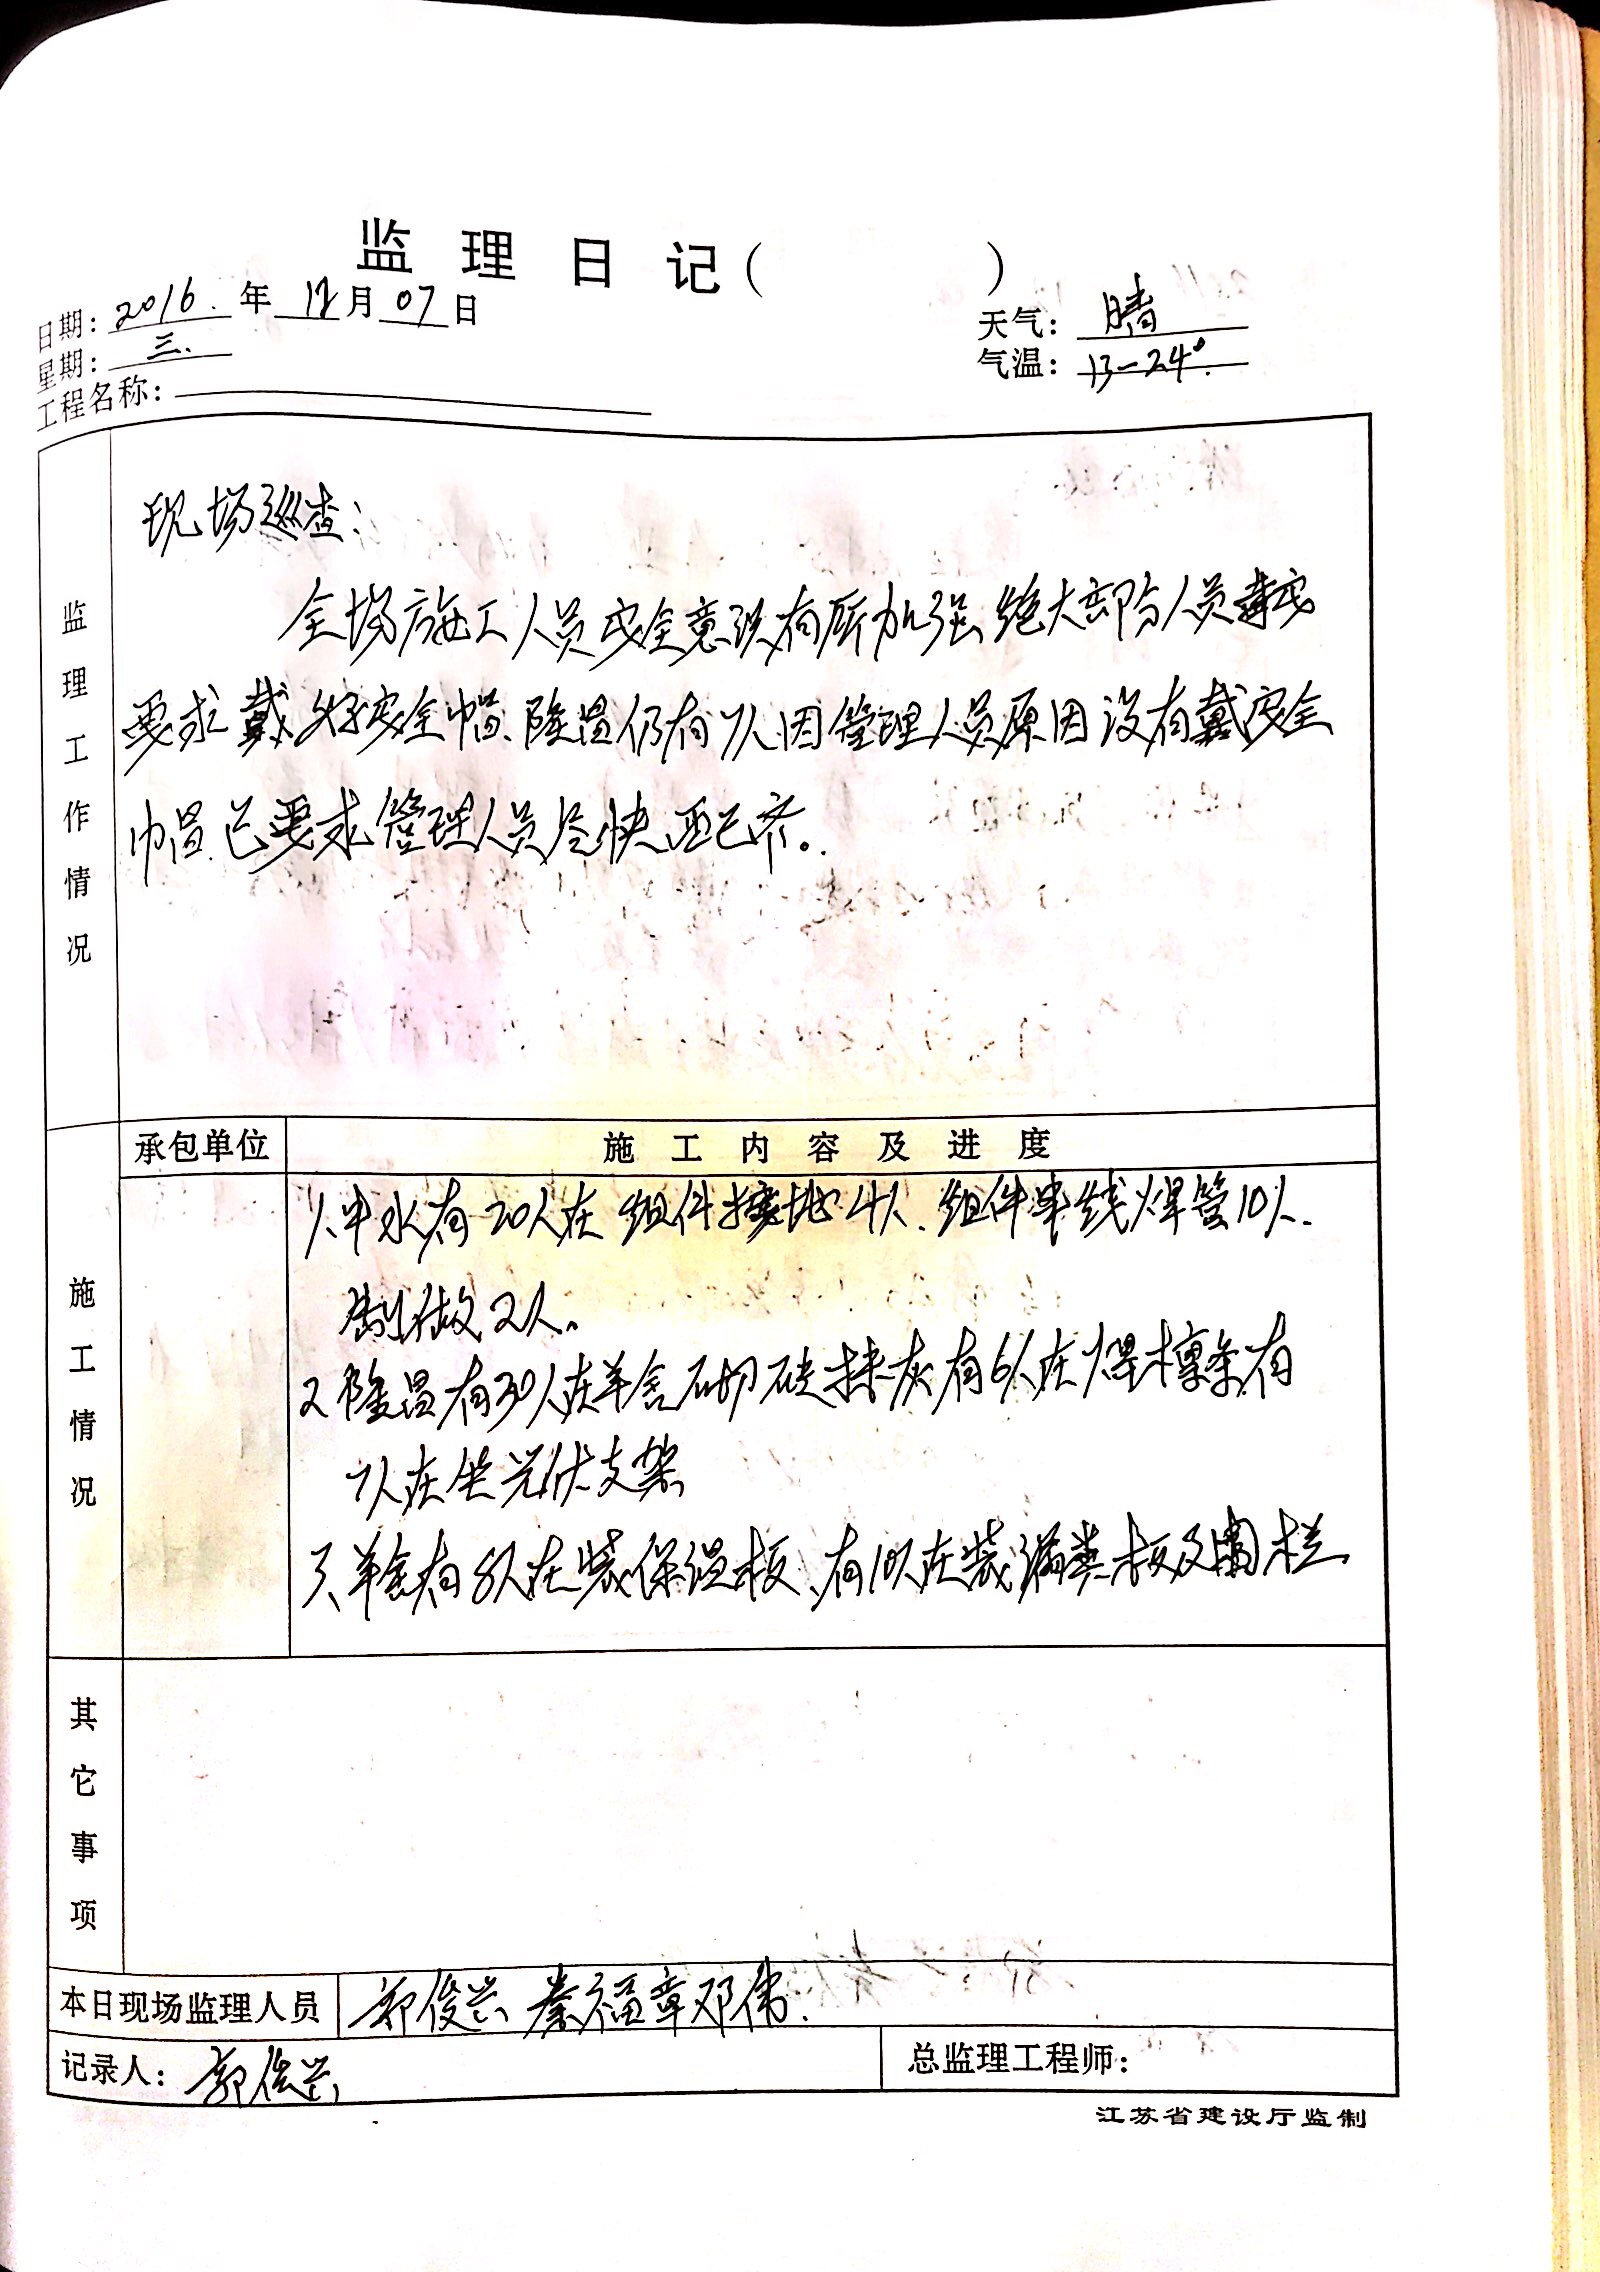 监理日记(　　　)
日期:2016.年12月07日
天气:晴
星期:三.
气温:13-24°.
工程名称:
监理工作情况
现场巡查:
全场施工人员安全意识有所加强,绝大部分人员
要求戴好安全帽、隆温仍有7人因管理人员原因没有戴安全
帽、已要求管理人员尽快配齐。
承包单位
施工内容及进度
施工情况
1、中水有20人在组件接地4人、组件串线焊管10人、
制做2人。
2、隆温有30人在羊舍砌砖抹灰有6人在焊檩条,有
7人在 光伏支架
3、羊舍有8人在装保温板、有10人在装漏粪板及围栏
其它事项
本日现场监理人员
郭俊兴 秦福章 邓伟.
记录人:郭俊兴
总监理工程师:
江苏省建设厅监制